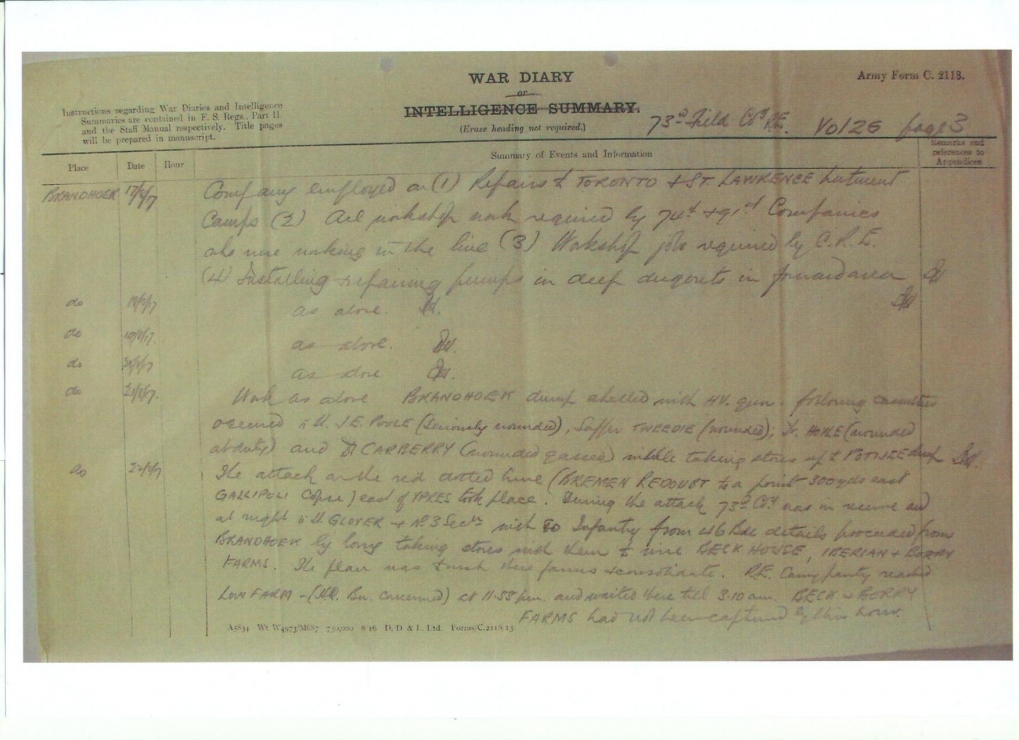 WAR DIARY
or
INTELLIGENCE SUMMARY.
(Erase heading not required.)
Army Form C. 2118.
Instructions regarding War Diaries and Intelligence
Summaries are contained in F. S. Regs., Part II.
and the Staff Manual respectively. Title pages
will be prepared in manuscript.
73rd Field Coy R.E. Vol 26 page 3
Place
Date
Hour
Summary of Events and Information
Remarks and
references to
Appendices
BRANDHOEK 17/8/17 Company employed on (1) Repairs to TORONTO + ST. LAWRENCE hutment
Camps (2) All workshop work required by 74th + 91st Companies
who were working in the line (3) Workshop jobs required by C.R.E.
(4) Installing + repairing pumps in deep dugouts in forward area
do 18/8/17 as above.
do 19/8/17. as above.
do 20/8/17 as above
do 21/8/17. Work as above BRANDHOEK dump shelled with HV. gun. following casualties
occurred Lt. J.E. POVLE (seriously wounded), Sapper TWEEDIE (wounded), HOYLE (wounded
at duty) and CARBERRY (wounded gassed) while taking stores up to POTIJZE dump
do 22/8/17 The attack on the red dotted line (BREMEN REDOUBT to a point 300 yds east
GALLIPOLI Copse) east of YPRES took place. During the attack 73rd Coy was in reserve and
at night Lt GLOVER + No 3 Sectn with 50 Infantry from 46 Bde details proceeded from
BRANDHOEK by lorry taking stores with them to wire BECK HOUSE, IBERIAN + BORRY
FARMS. The plan was to wire these farms + consolidate. R.E. Carry party reached
LOW FARM - (HQ. Bn. concerned) at 11-55 p.m. and waited there till 3-10 am. BECK + BORRY
FARMS had not been captured by this hour.
A5834 Wt. W4973/M687 750,000 8/16 D. D. & L. Ltd. Forms/C.2118/13